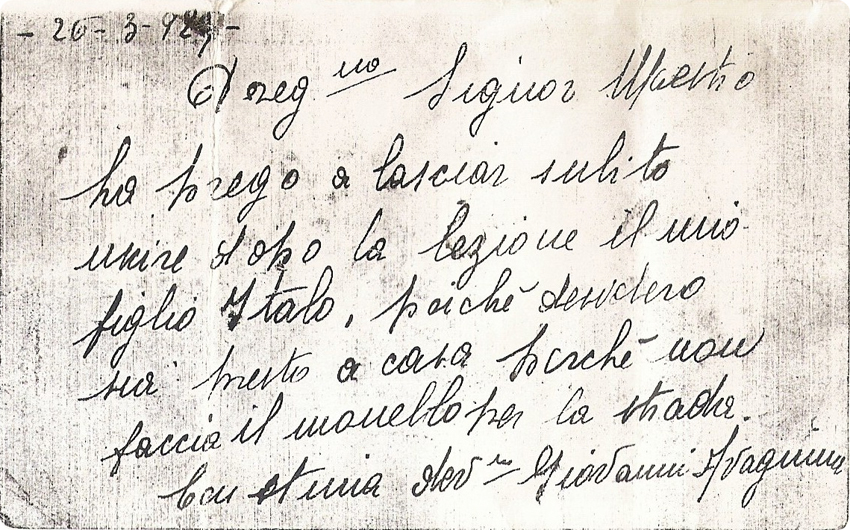 - 26-3-927 -
Preg mo Signor Maestro
La prego a lasciar subito
uscire dopo la lezione il mio
figlio Italo, poiché desidero
sia presto a casa perché non
faccia il monello per la strada.
Con stima dev mo Giovanni